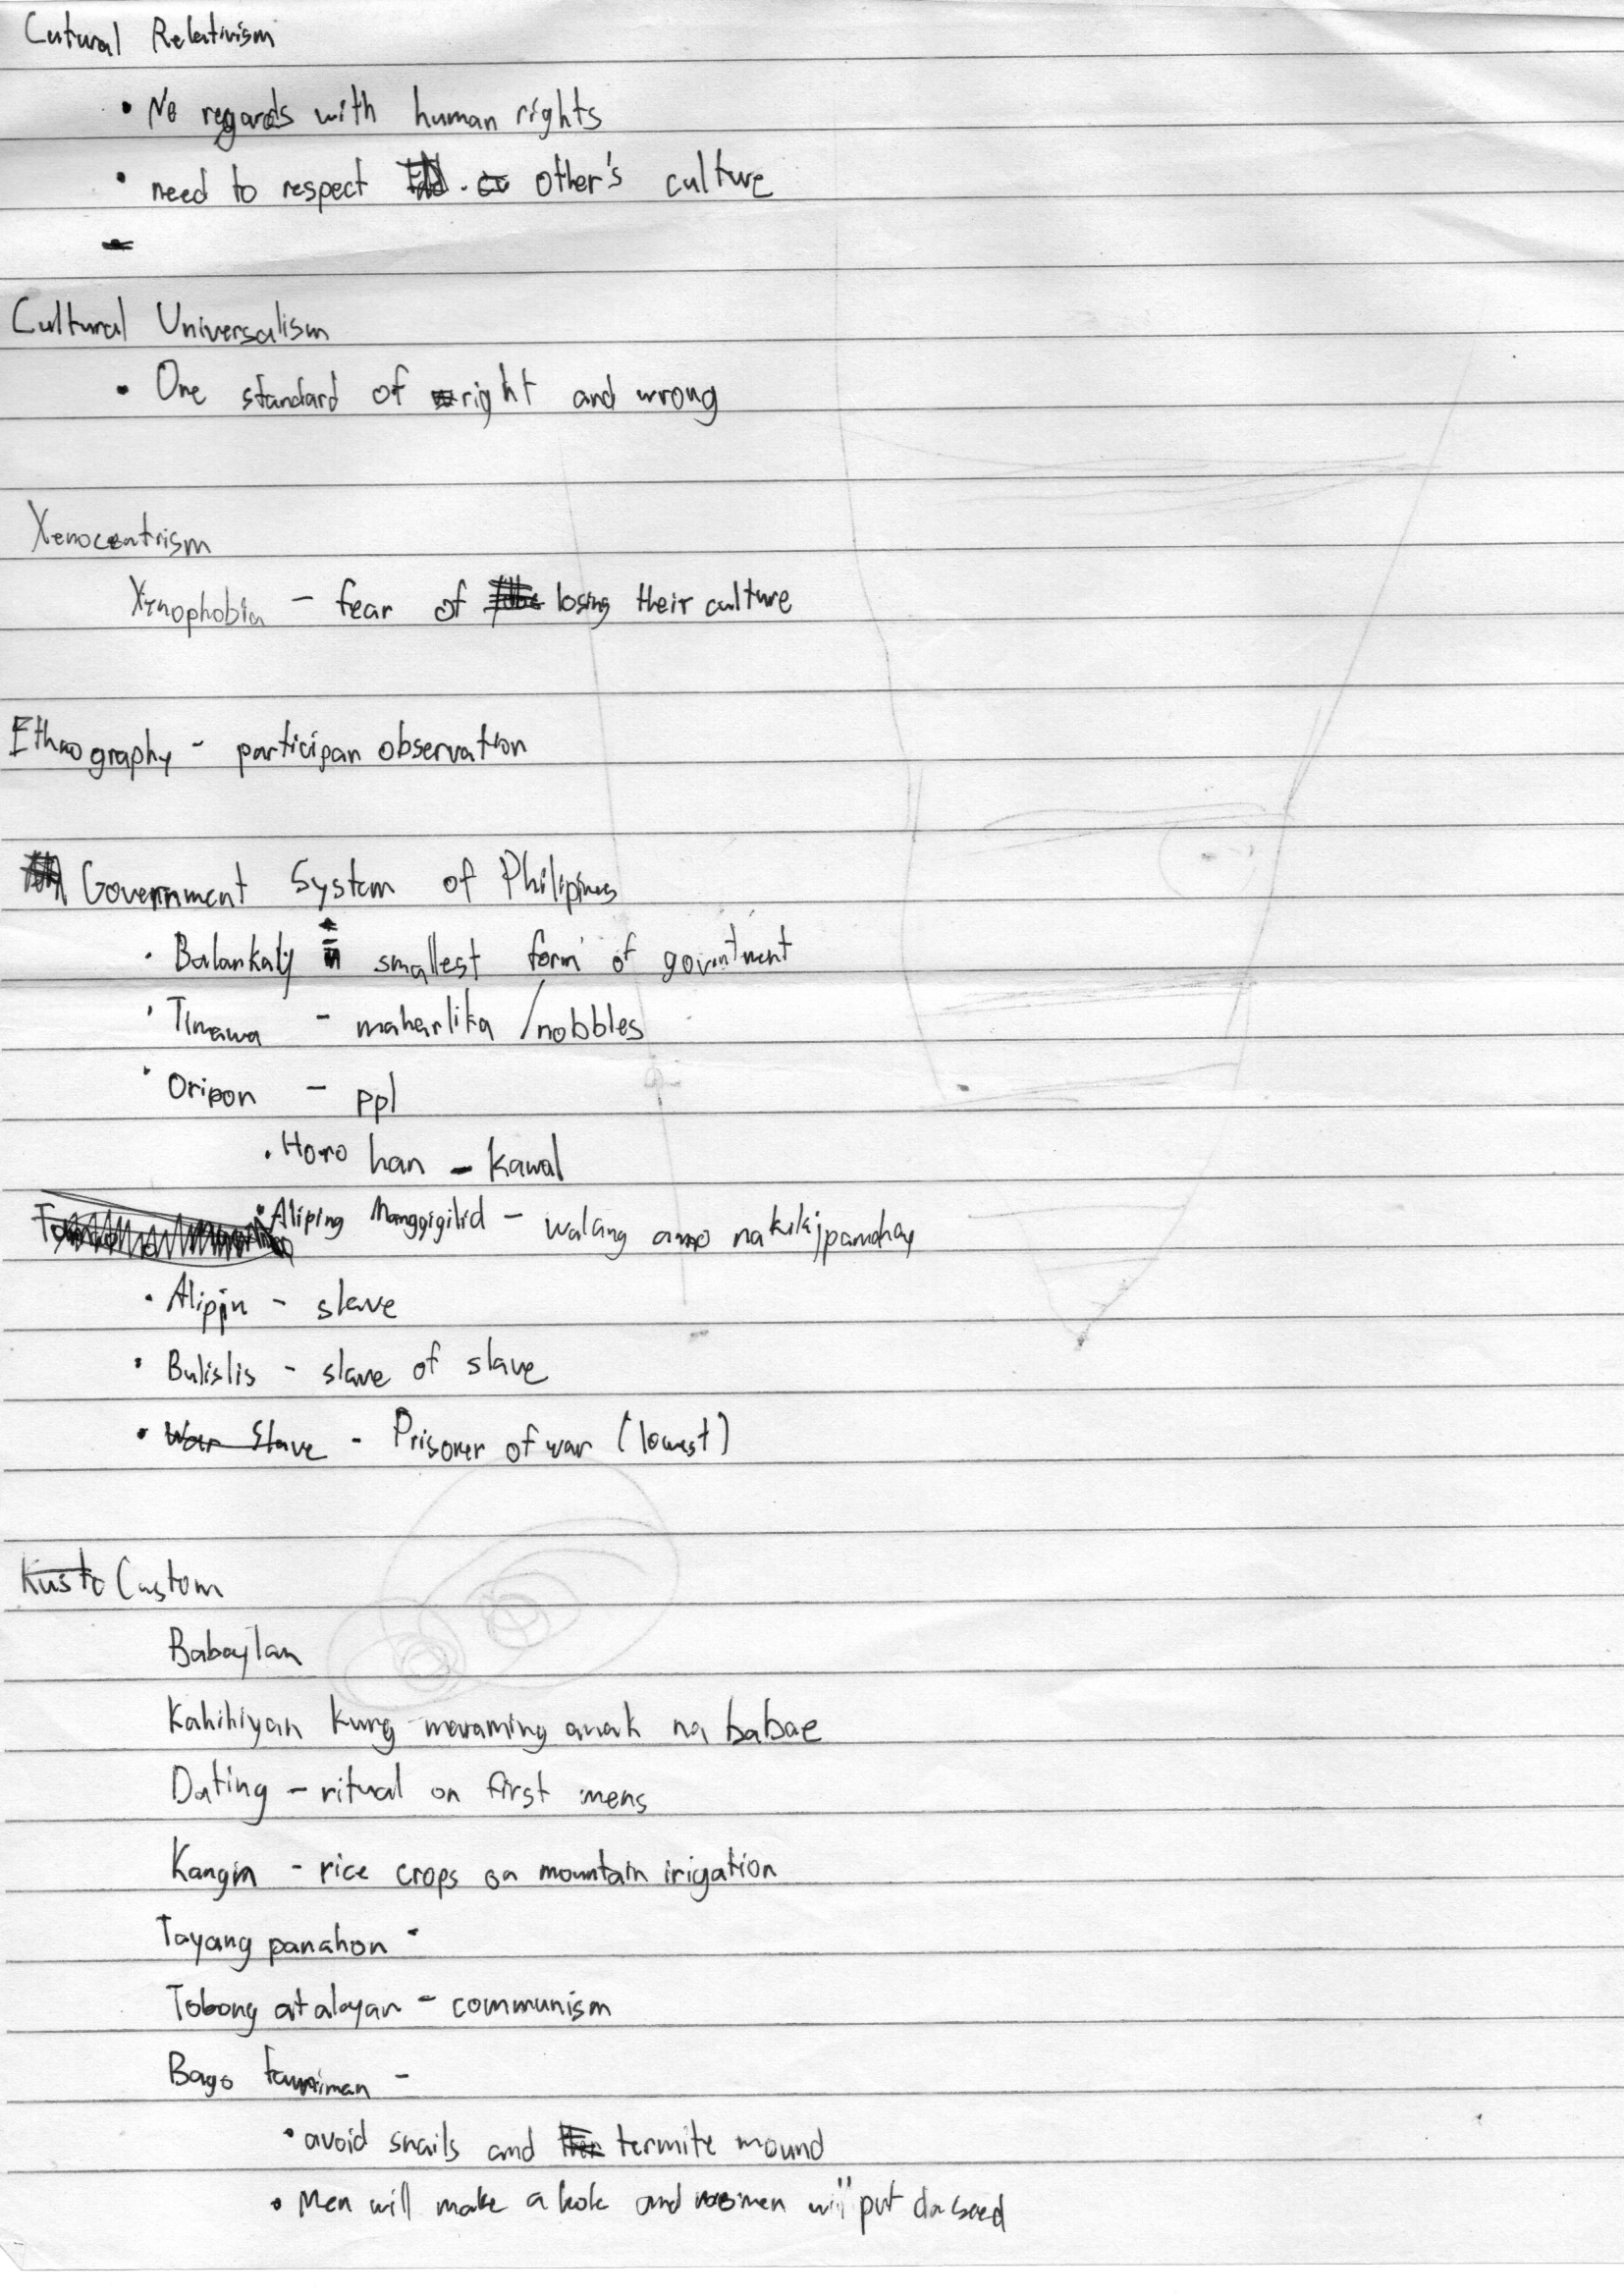 Cutural Relativism
• No regards with human rights
• need to respect other's culture
Cultural Universalism
• One standard of right and wrong
Xenocentrism
Xenophobia - fear of losing their culture
Ethnography - participan observation
Government System of Philipines
• Balankay smallest form of
• Timawa - maharlika / nobbles
• Oripon - ppl
• Horo han - kawal
• Aliping Manggigilid - walang amo nakikipamahay
• Alipin - slave
• Bulislis - slave of slave
• War Slave - Prisoner of war (lowest)
Kusto Custom
Babaylan
Kahihiyan kung maraming anak na babae
Dating - ritual on first mens
Kangin - rice crops on mountain irigation
Tayang panahon -
Tobong at alayan - communism
Bago taniman -
• avoid snails and termite mound
• Men will make a hole and women will put da seed